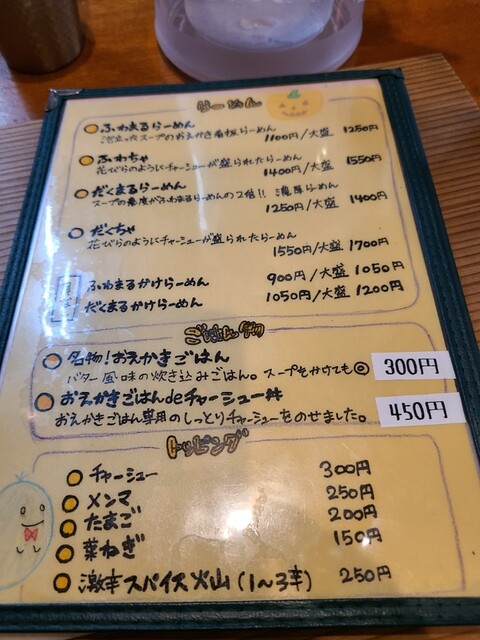 らーめん
ふわまるらーめん
泡立ったスープのおえかき看板らーめん
1100円/大盛 1250円
ふわちゃ
花びらのようにチャーシューが盛られたらーめん
1400円/大盛 1550円
だくまるらーめん
スープの濃度がふわまるらーめんの2倍!! 濃厚らーめん
1250円/大盛 1400円
だくちゃ
花びらのようにチャーシューが盛られたらーめん
1550円/大盛 1700円
ふわまるかけらーめん 900円/大盛 1050円
だくまるかけらーめん 1050円/大盛 1200円
ごはん物
名物!おえかきごはん
バター風味の炊き込みごはん。スープをかけても◎ 300円
おえかきごはんdeチャーシュー丼 450円
おえかきごはん専用のしっとりチャーシューをのせました。
トッピング
チャーシュー 300円
メンマ 250円
たまご 200円
葉ねぎ 150円
激辛スパイス火山(1~3辛) 250円